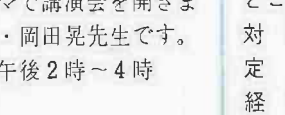 マで講演会を開きま
・岡田晃先生です。
午後2時～4時
対
定
経